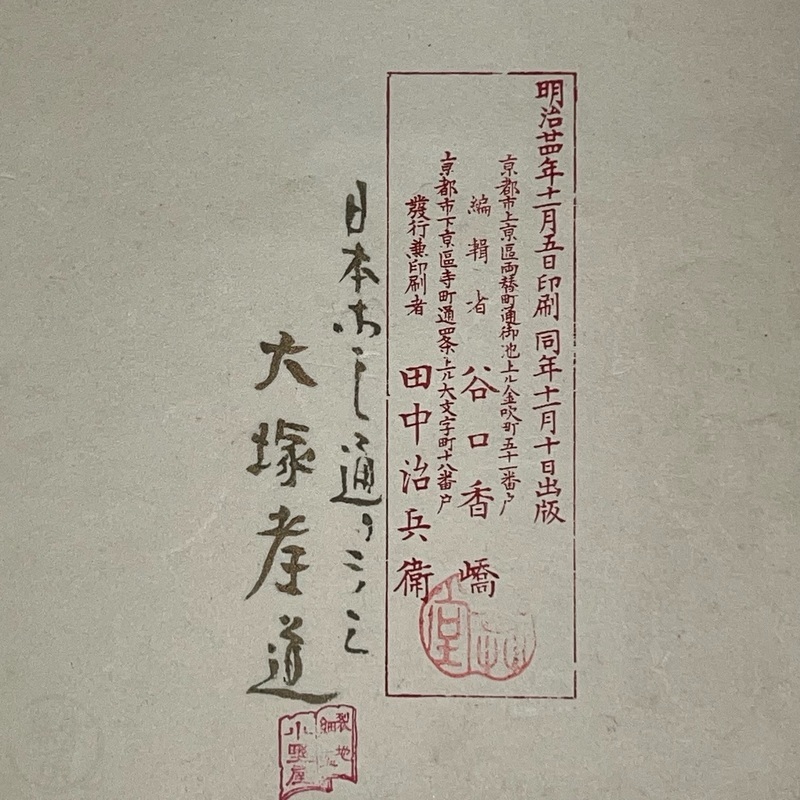 明治廿四年十一月五日印刷 同年十一月十日出版
京都市上京區両替町通御池上ル金吹町五十一番戸
編輯者 谷口香嶠
京都市下京區寺町通四条上ル大文字町十八番戸
發行兼印刷者 田中治兵衛
日本
通
大塚孝道
裂地
小野屋